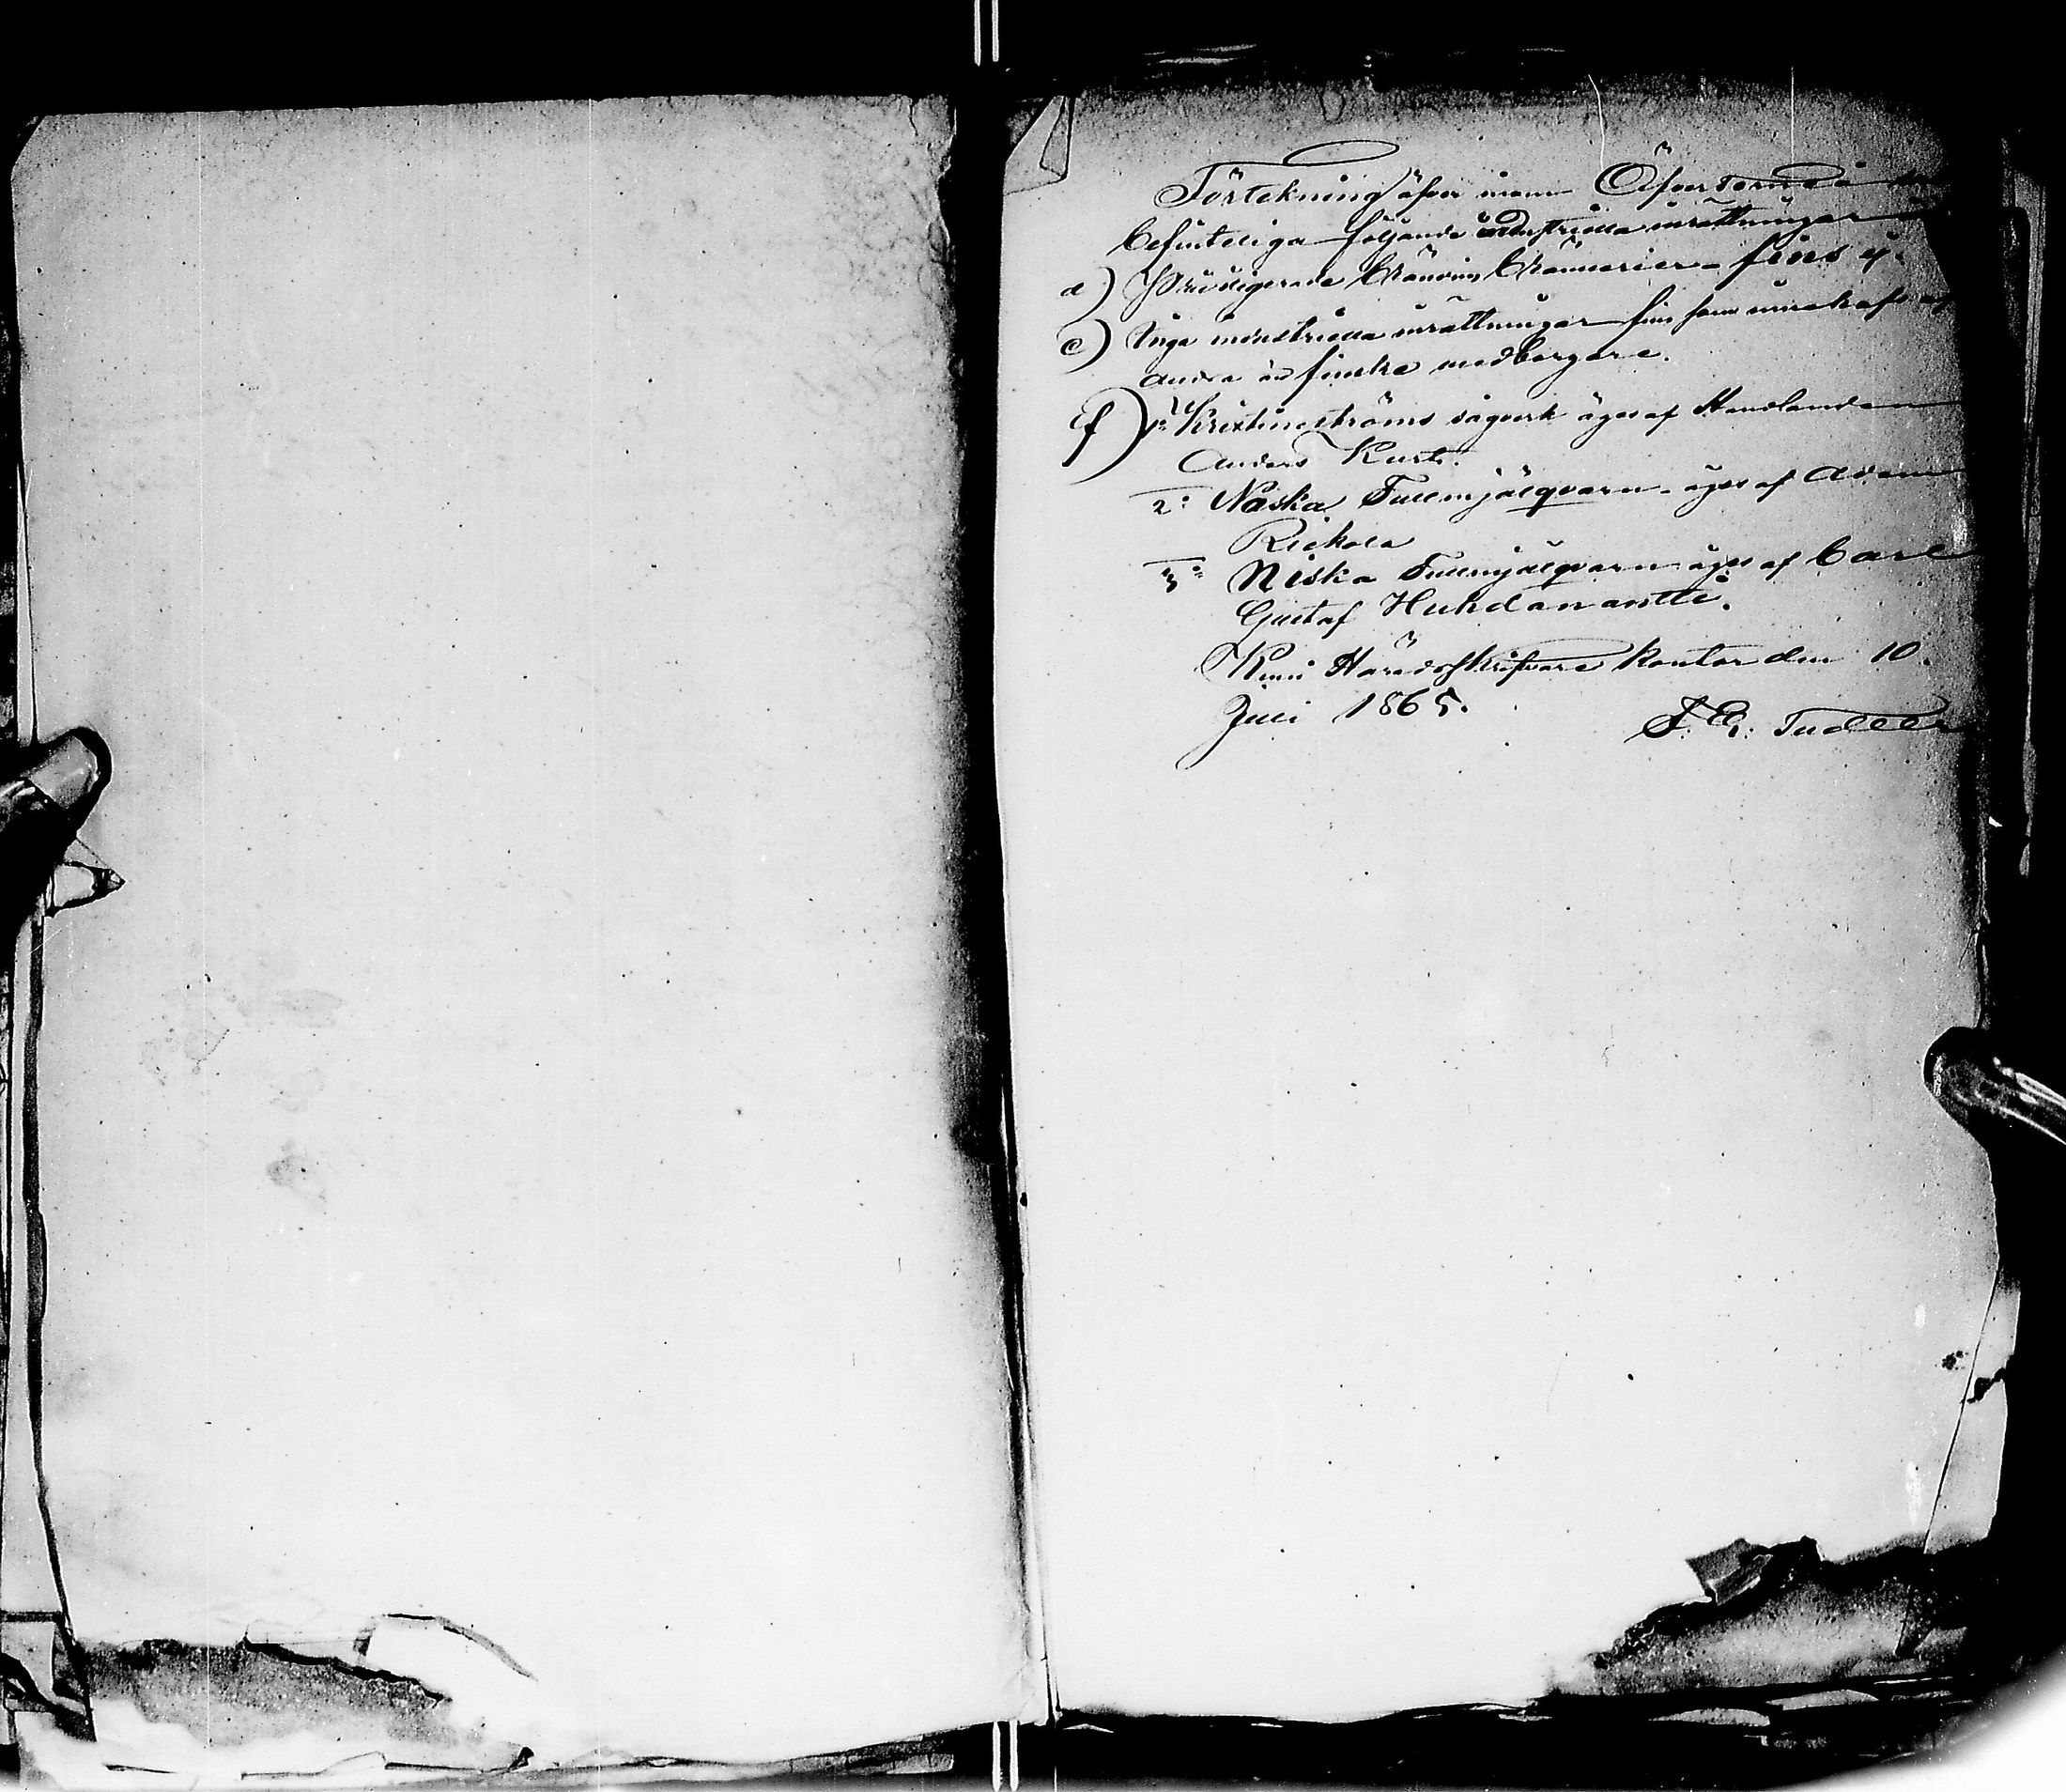 Förtekning öfver inom Öfvertorneå
befinteliga följande industriella inrättningar
a) Priviligerade bränvins brännerier - fins ej.
e) Inga industriella inrättningar fins som innehafs af
andra än finske medborgare.
f) 1º Kristineströms sågverk äges af Handlanden
Anders Kurt.
2º Naska Tullmjölqvarn - äges af Adam
Riekola
3º Niska Tullmjölqvarn äges af Carl
Gustaf Huhdanantti.
Kemi Häradsskrifvare kontor den 10.
Juli 1865.
F. E. Tudeer